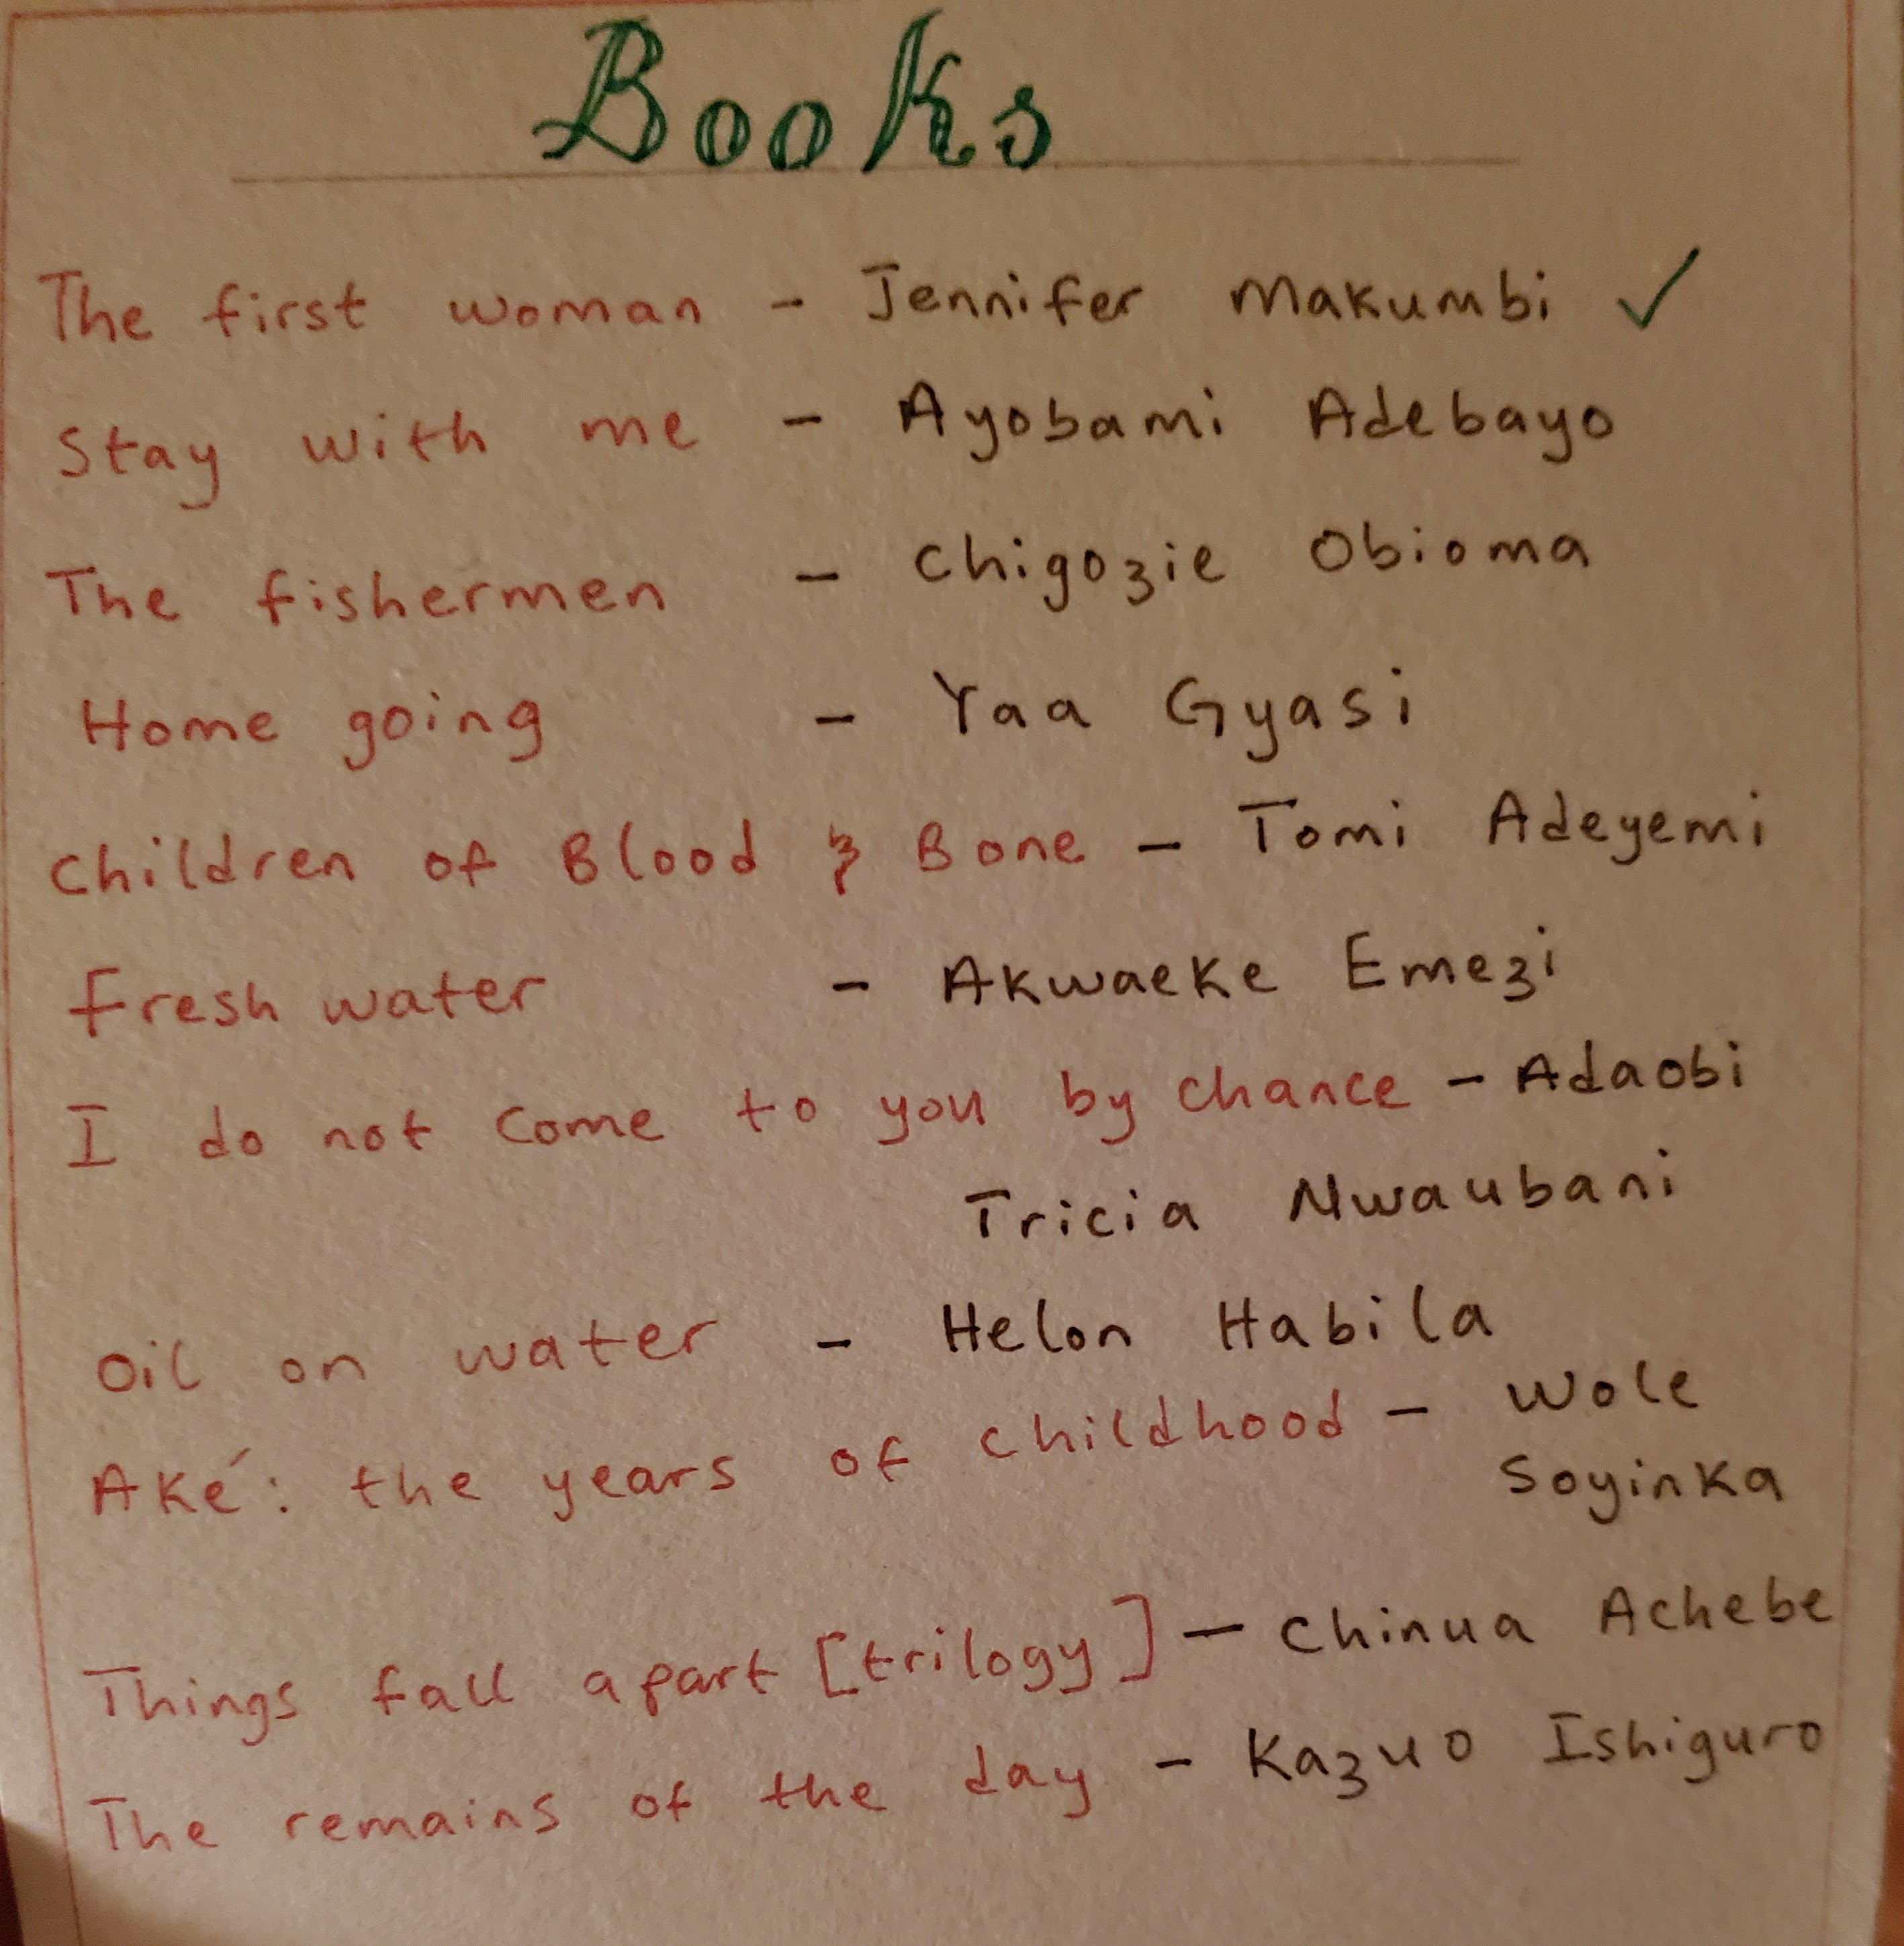 Books
The first woman - Jennifer Makumbi ✓
Stay with me - Ayobami Adebayo
The fishermen - Chigozie Obioma
Home going - Yaa Gyasi
Children of Blood & Bone - Tomi Adeyemi
Fresh water - Akwaeke Emezi
I do not come to you by chance - Adaobi
Tricia Nwaubani
Oil on water - Helon Habila
Aké: the years of childhood - Wole
Soyinka
Things fall apart [trilogy] - Chinua Achebe
The remains of the day - Kazuo Ishiguro